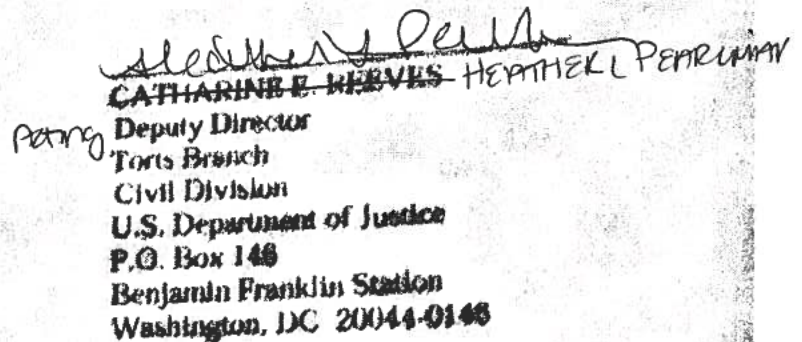 Heather L Pearlman
CATHARINE E. REEVES HEATHER L PEARLMAN
Acting Deputy Director
Torts Branch
Civil Division
U.S. Department of Justice
P.O. Box 146
Benjamin Franklin Station
Washington, DC 20044-0146